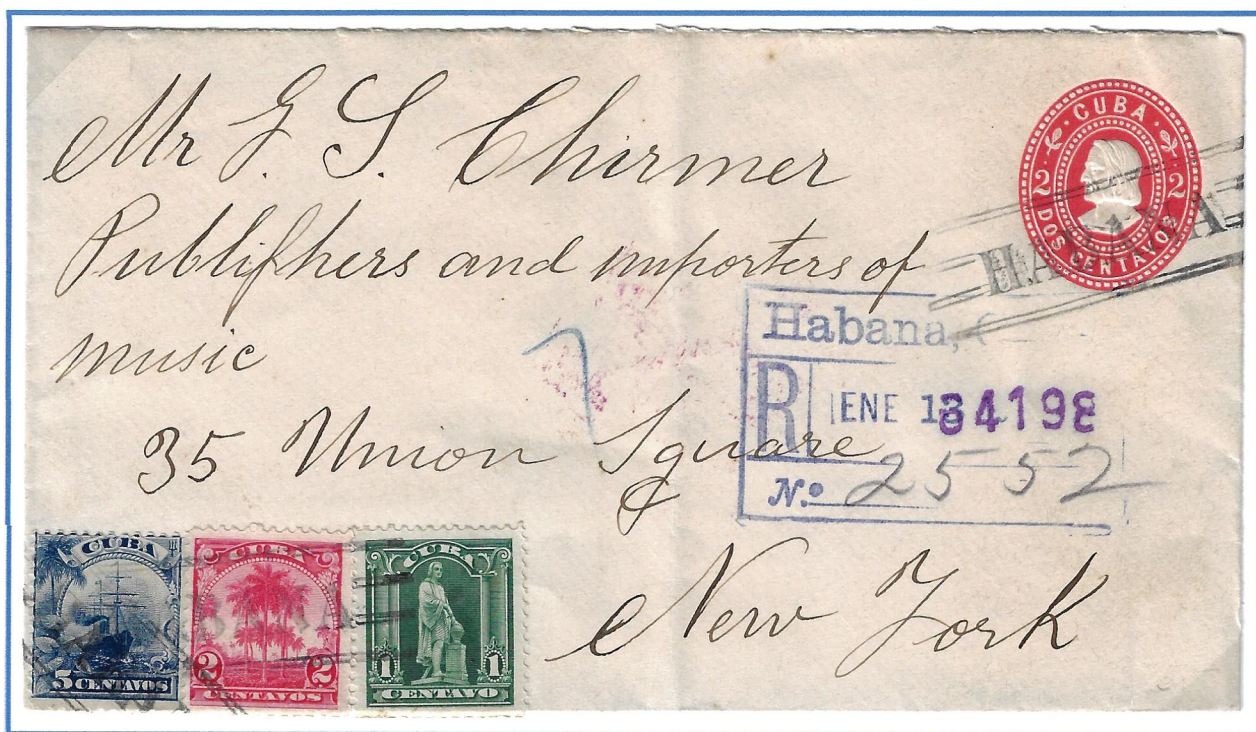 Mr G. S. Chirmer
Publishers and importers of
music
35 Union Square
New York
CUBA
2 2
DOS CENTAVOS
HABANA
Habana,
R
ENE 13
64198
No. 2552
CUBA
5 CENTAVOS
CUBA
2 2
CENTAVOS
CUBA
1 1
CENTAVO